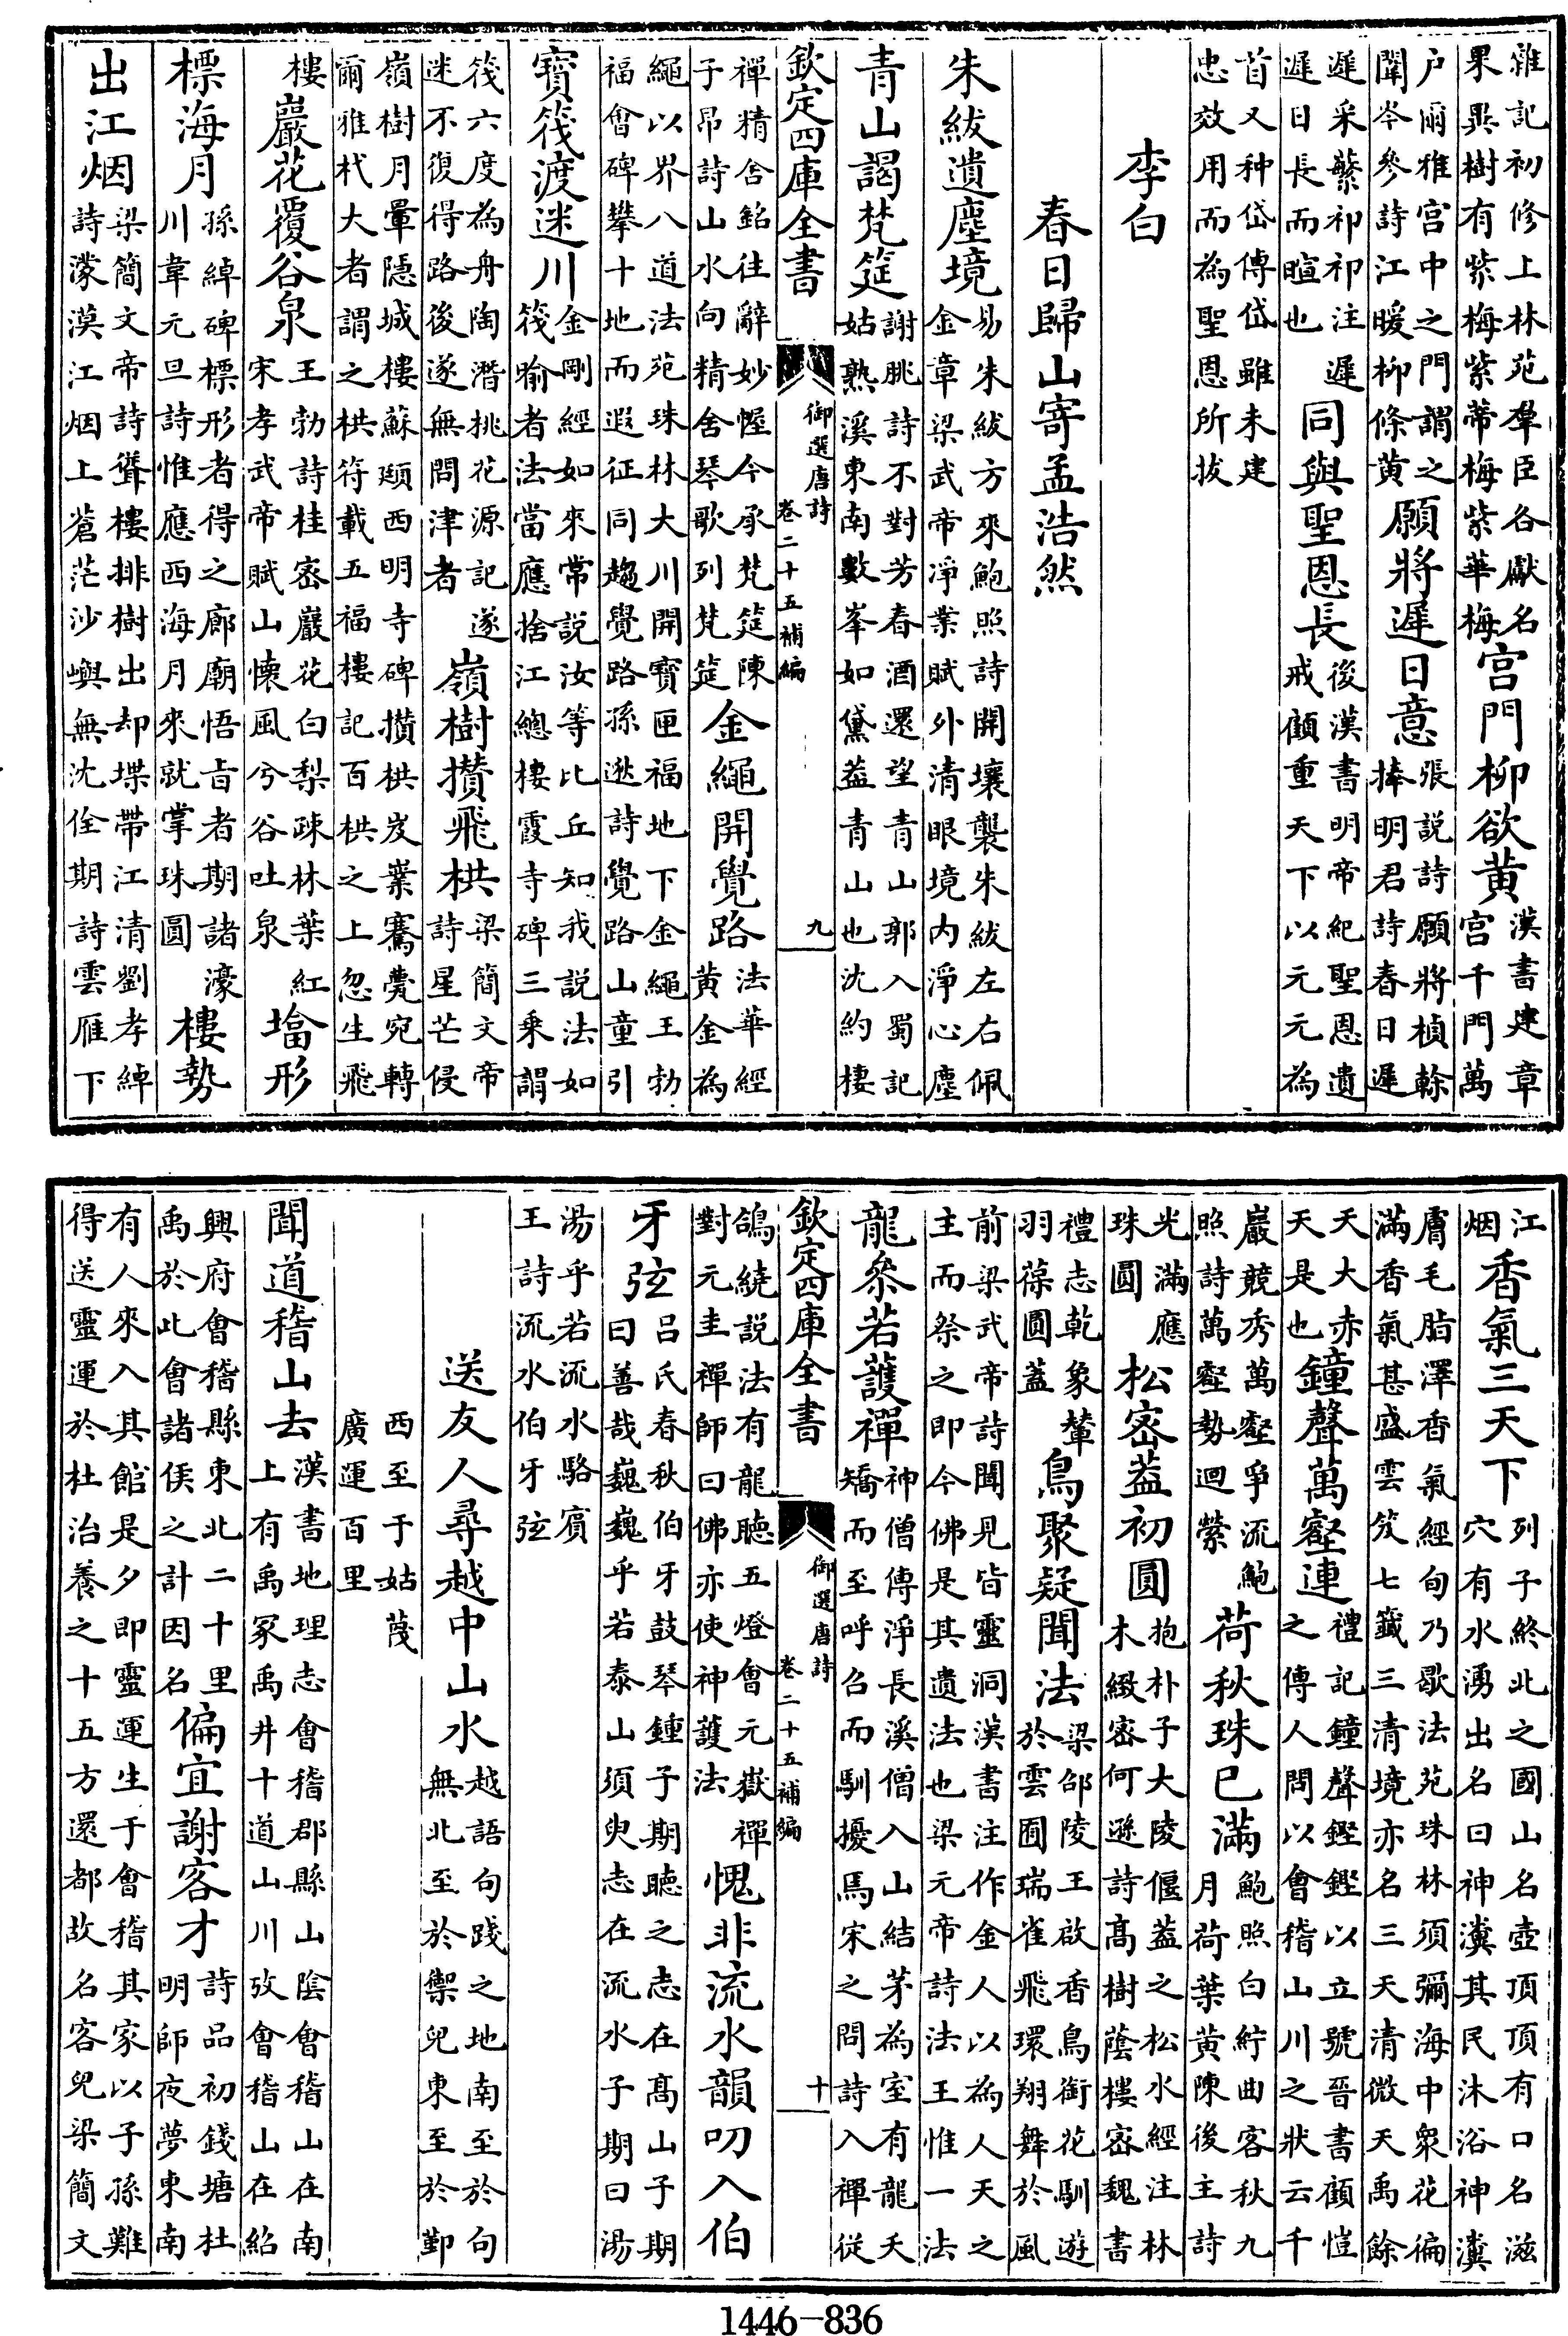 雜記初修上林苑羣臣各獻名果異樹有紫梅紫蒂梅紫華梅宫門柳欲黄漢書建章宫千門萬
户爾雅宫中之門謂之闈岑參詩江暖柳條黄願將遲日意張説詩願將楨榦捧明君詩春日遲
遲采蘩祁祁注遲遲日長而暄也同與聖恩長後漢書明帝紀聖恩遺戒顧重天下以元元為
首又种岱傳岱雖未建忠效用而為聖恩所拔
李白
春日歸山寄孟浩然
朱紱遺塵境易朱紱方來鮑照詩開壤襲朱紱左右佩金章梁武帝淨業賦外清眼境内淨心塵
青山謁梵筵謝朓詩不對芳春酒還望青山郭入蜀記姑熟溪東南數峯如黛葢青山也沈約棲
欽定四庫全書 御選唐詩 卷二十五補編 九
禪精舍銘往辭妙幄今承梵筵陳子昂詩山水向精舍琴歌列梵筵金繩開覺路法華經黄金為
繩以界八道法苑珠林大川開寶匣福地下金繩王勃福會碑攀十地而遐征同趨覺路孫逖詩覺路山童引
寶筏渡迷川金剛經如來常説汝等比丘知我説法如筏喻者法當應捨江總棲霞寺碑三乘謂
筏六度為舟陶潛桃花源記遂迷不復得路後遂無問津者嶺樹攢飛栱梁簡文帝詩星芒侵
嶺樹月暈隱城樓蘇頲西明寺碑攢栱岌嶪騫甍宛轉爾雅杙大者謂之栱符載五福樓記百栱之上忽生飛
樓巖花覆谷泉王勃詩桂宻巖花白梨疎林葉紅宋孝武帝賦山懷風兮谷吐泉㙮形
標海月孫綽碑標形者得之廊廟悟旨者期諸濠川韋元旦詩惟應西海月來就掌珠圓樓勢
出江烟梁簡文帝詩聳樓排樹出却堞帶江清劉孝綽詩濛漠江烟上蒼茫沙嶼無沈佺期詩雲雁下
江烟香氣三天下列子終北之國山名壺頂頂有口名滋穴有水湧出名曰神瀵其民沐浴神瀵
膚毛脂澤香氣經旬乃歇法苑珠林須彌海中衆花偏滿香氣甚盛雲笈七籖三清境亦名三天清微天禹餘
天大赤天是也鐘聲萬壑連禮記鐘聲鏗鏗以立號晉書顧愷之傳人問以會稽山川之狀云千
巖競秀萬壑爭流鮑照詩萬壑勢迴縈荷秋珠已滿鮑照白紵曲客秋九月荷葉黄陳後主詩
光滿應珠圓松宻葢初圓抱朴子大陵偃葢之松水經注林木緻宻何遜詩髙樹蔭樓宻魏書
禮志乾象輦羽葆圓葢鳥聚疑聞法梁邵陵王啟香鳥銜花馴遊於雲囿瑞雀飛環翔舞於風
前梁武帝詩聞見皆靈洞漢書注作金人以為人天之主而祭之即今佛是其遺法也梁元帝詩法王惟一法
龍參若護禪神僧傳淨長溪僧入山結茅為室有龍夭矯而至呼召而馴擾馬宋之問詩入禪從
欽定四庫全書 御選唐詩 卷二十五補編 十
鴿繞説法有龍聽五燈會元嶽禪對元圭禪師曰佛亦使神護法愧非流水韻叨入伯
牙弦吕氏春秋伯牙鼓琴鍾子期聽之志在髙山子期曰善哉巍巍乎若泰山須臾志在流水子期曰湯
湯乎若流水駱賓王詩流水伯牙弦
送友人尋越中山水越語句踐之地南至於句無北至於禦兒東至於鄞
西至于姑蔑廣運百里
聞道稽山去漢書地理志會稽郡縣山陰會稽山在南上有禹冢禹井十道山川攷會稽山在紹
興府會稽縣東北二十里禹於此會諸侯之計因名偏宜謝客才詩品初錢塘杜明師夜夢東南
有人來入其館是夕即靈運生于會稽其家以子孫難得送靈運於杜治養之十五方還都故名客兒梁簡文
1446-836